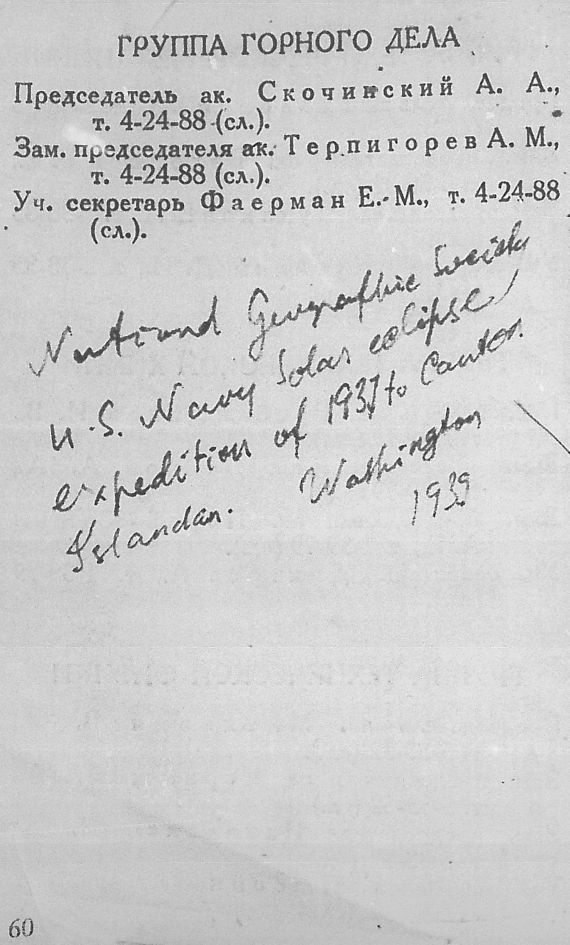 ГРУППА ГОРНОГО ДЕЛА
Председатель ак. Скочинский А. А.,
т. 4-24-88 (сл.).
Зам. председателя ак. Терпигорев А. М.,
т. 4-24-88 (сл.).
Уч. секретарь Фаерман Е. М., т. 4-24-88
(сл.).
National Geographic Society
U.S. Navy Solar eclipse
expedition of 1937 to Canton
Islandan. Washington
1939
60